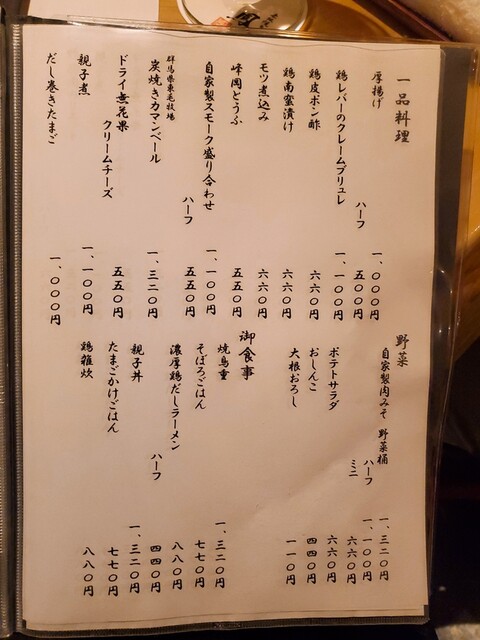 一品料理
厚揚げ 一、〇〇〇円
ハーフ 五〇〇円
鶏レバーのクレームブリュレ 一、一〇〇円
鶏皮ポン酢 六六〇円
鶏南蛮漬け 六六〇円
モツ煮込み 六六〇円
峰岡とうふ 五五〇円
自家製スモーク盛り合わせ 一、一〇〇円
ハーフ 五五〇円
群馬県東毛牧場
炭焼きカマンベール 一、三二〇円
ドライ無花果
クリームチーズ 五五〇円
親子煮 一、一〇〇円
だし巻きたまご 一、〇〇〇円
野菜
自家製肉みそ 野菜桶 一、三二〇円
ハーフ 一、一〇〇円
ミニ 六六〇円
ポテトサラダ 六六〇円
おしんこ 四四〇円
大根おろし 一一〇円
御食事
焼鳥重 一、三二〇円
そぼろごはん 七七〇円
濃厚鶏だしラーメン 八八〇円
ハーフ 四四〇円
親子丼 一、三二〇円
たまごかけごはん 七七〇円
鶏雑炊 八八〇円